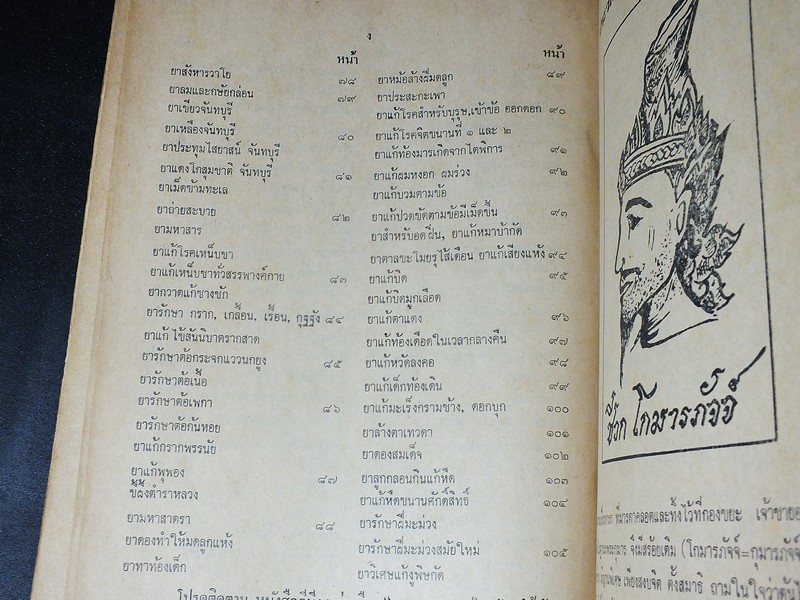 ง
หน้า
ยาสังหารวาโย ๗๘
ยาลมและกษัยกล่อน ๗๙
ยาเขียวจันทบุรี
ยาเหลืองจันทบุรี ๘๐
ยาประทุมไสยาสน์ จันทบุรี
ยาแดงโกสุมชาติ จันทบุรี ๘๑
ยาเม็ดข้ามทะเล
ยาถ่ายสะบาย ๘๒
ยามหาสาร
ยาแก้โรคเหน็บชา
ยาแก้เหน็บชาทั่วสรรพางค์กาย ๘๓
ยากวาดแก้ซางชัก
ยารักษา กราก, เกลื้อน, เรื้อน, กุฐฐัง ๘๔
ยาแก้ไข้สันนิบาตรากสาด
ยารักษาต้อกระจกแววนกยูง ๘๕
ยารักษาต้อเนื้อ
ยารักษาต้อเพกา ๘๖
ยารักษาต้อก้นหอย
ยาแก้กรากพรรนัย
ยาแก้พุพอง ๘๗
ขี้ผึ้งตำราหลวง
ยามหาสาตรา ๘๘
ยาดองทำให้มดลูกแห้ง
ยาทาท้องเด็ก
หน้า
ยาหม้อล้างฝีมดลูก ๘๙
ยาประสะกะเพา
ยาแก้โรคสำหรับบุรุษ,เข้าข้อ ออกดอก ๙๐
ยาแก้โรคจิตขนานที่ ๑ และ ๒
ยาแก้ท้องมารเกิดจากไตพิการ ๙๑
ยาแก้ผมหงอก ผมร่วง ๙๒
ยาแก้บวมตามข้อ
ยาแก้ปวดขัดตามข้อมีเม็ดขึ้น ๙๓
ยาสำหรับอดฝิ่น, ยาแก้หมาบ้ากัด
ยาตาลขะโมยรุไส้เดือน ยาแก้เสียงแห้ง ๙๔
ยาแก้บิด ๙๕
ยาแก้บิดมูกเลือด
ยาแก้ตาแดง ๙๖
ยาแก้ท้องเดือดในเวลากลางคืน ๙๗
ยาแก้หวัดลงคอ ๙๘
ยาแก้เด็กท้องเดิน ๙๙
ยาแก้มะเร็งกรามช้าง, ดอกบุก ๑๐๐
ยาล้างตาเทวดา ๑๐๑
ยาดองสมเด็จ ๑๐๒
ยาลูกกลอนกินแก้หืด ๑๐๓
ยาแก้หืดขนานศักดิ์สิทธิ์ ๑๐๔
ยารักษาฝีมะม่วง
ยารักษาฝีมะม่วงสมัยใหม่ ๑๐๕
ยาวิเศษแก้งูพิษกัด
โปรดติดตาม
ชีวก โกมารภัจจ์
ที่มารดาคลอดและทิ้งไว้ที่กองขยะ เจ้าชาย
จึงมีสร้อยเติม (โกมารภัจจ์=กุมารภัจจ์
เพียงสงบจิต ตั้งสมาธิ ถามในใจว่าต้นไ